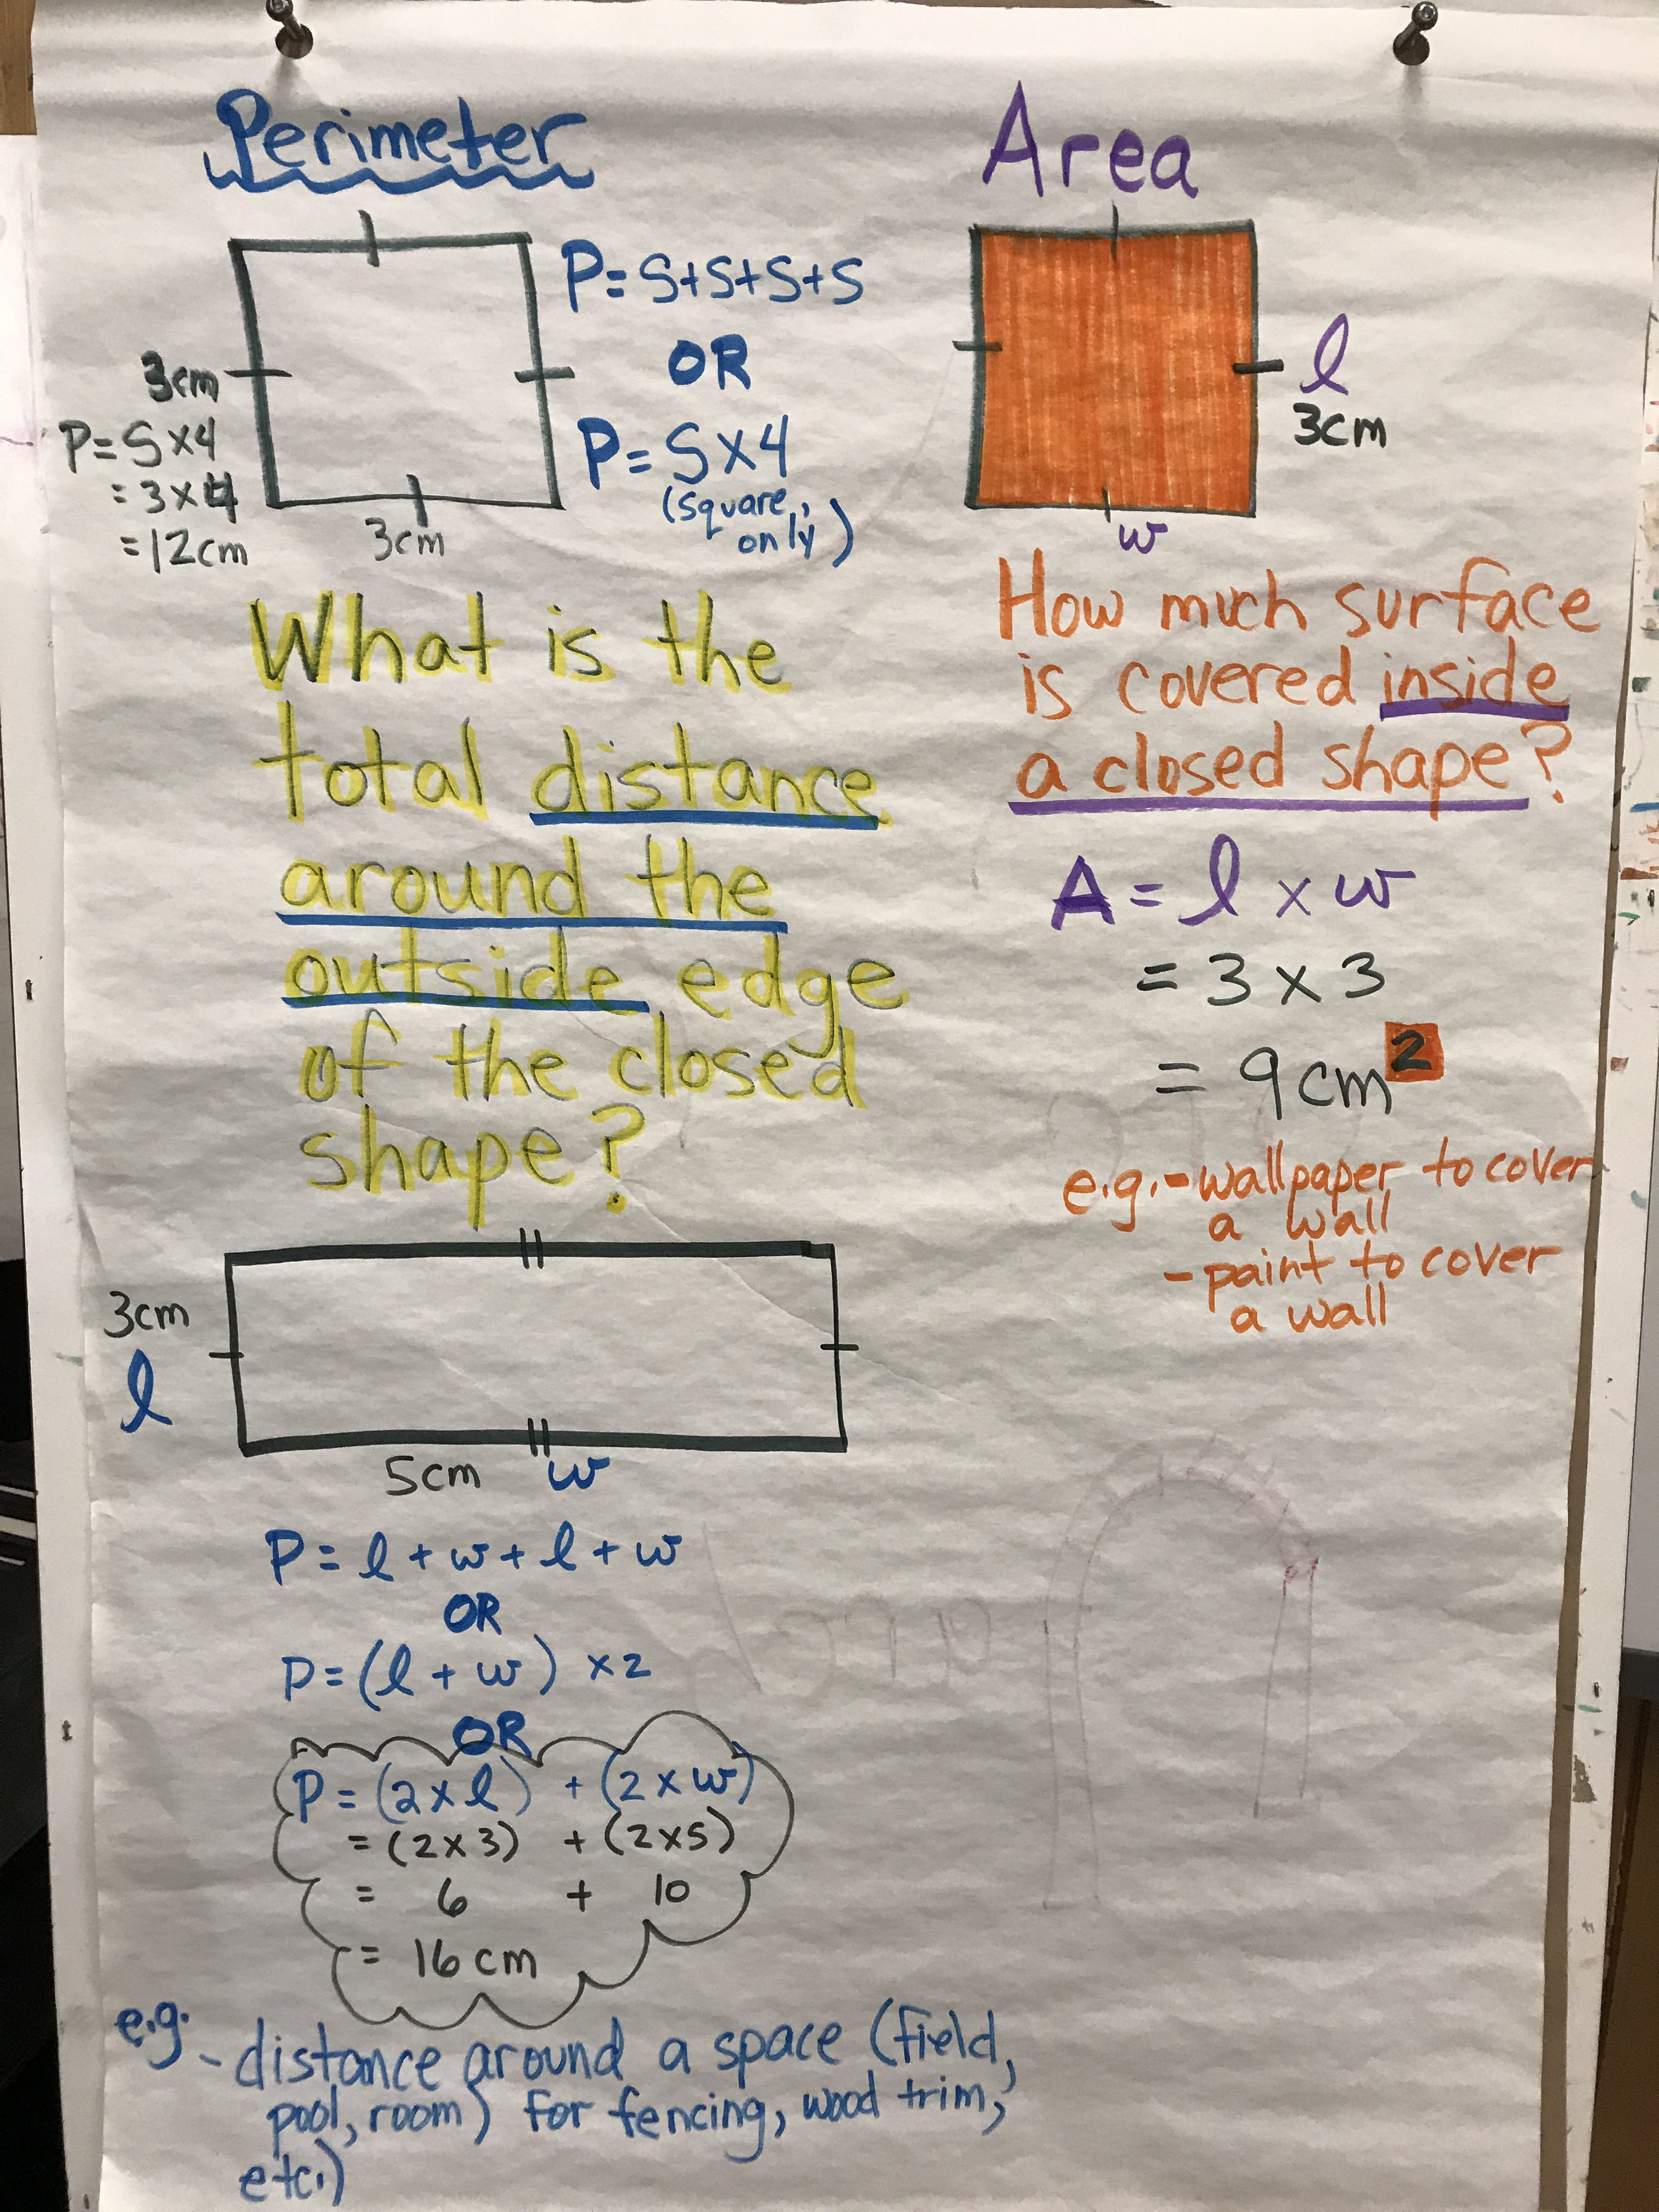 Perimeter
P=S+S+S+S
OR
P=S×4
(square
only)
3cm
P=S×4
=3×4
=12cm
3cm
What is the
total distance
around the
outside edge
of the closed
shape?
3cm
l
5cm w
P=l+w+l+w
OR
P=(l+w) ×2
OR
P=(2×l) + (2×w)
=(2×3) + (2×5)
= 6 + 10
= 16cm
e.g. - distance around a space (field,
pool, room) for fencing, wood trim,
etc.)
Area
l
3cm
w
How much surface
is covered inside
a closed shape?
A=l×w
=3×3
=9cm²
e.g. - wallpaper to cover
a wall
- paint to cover
a wall